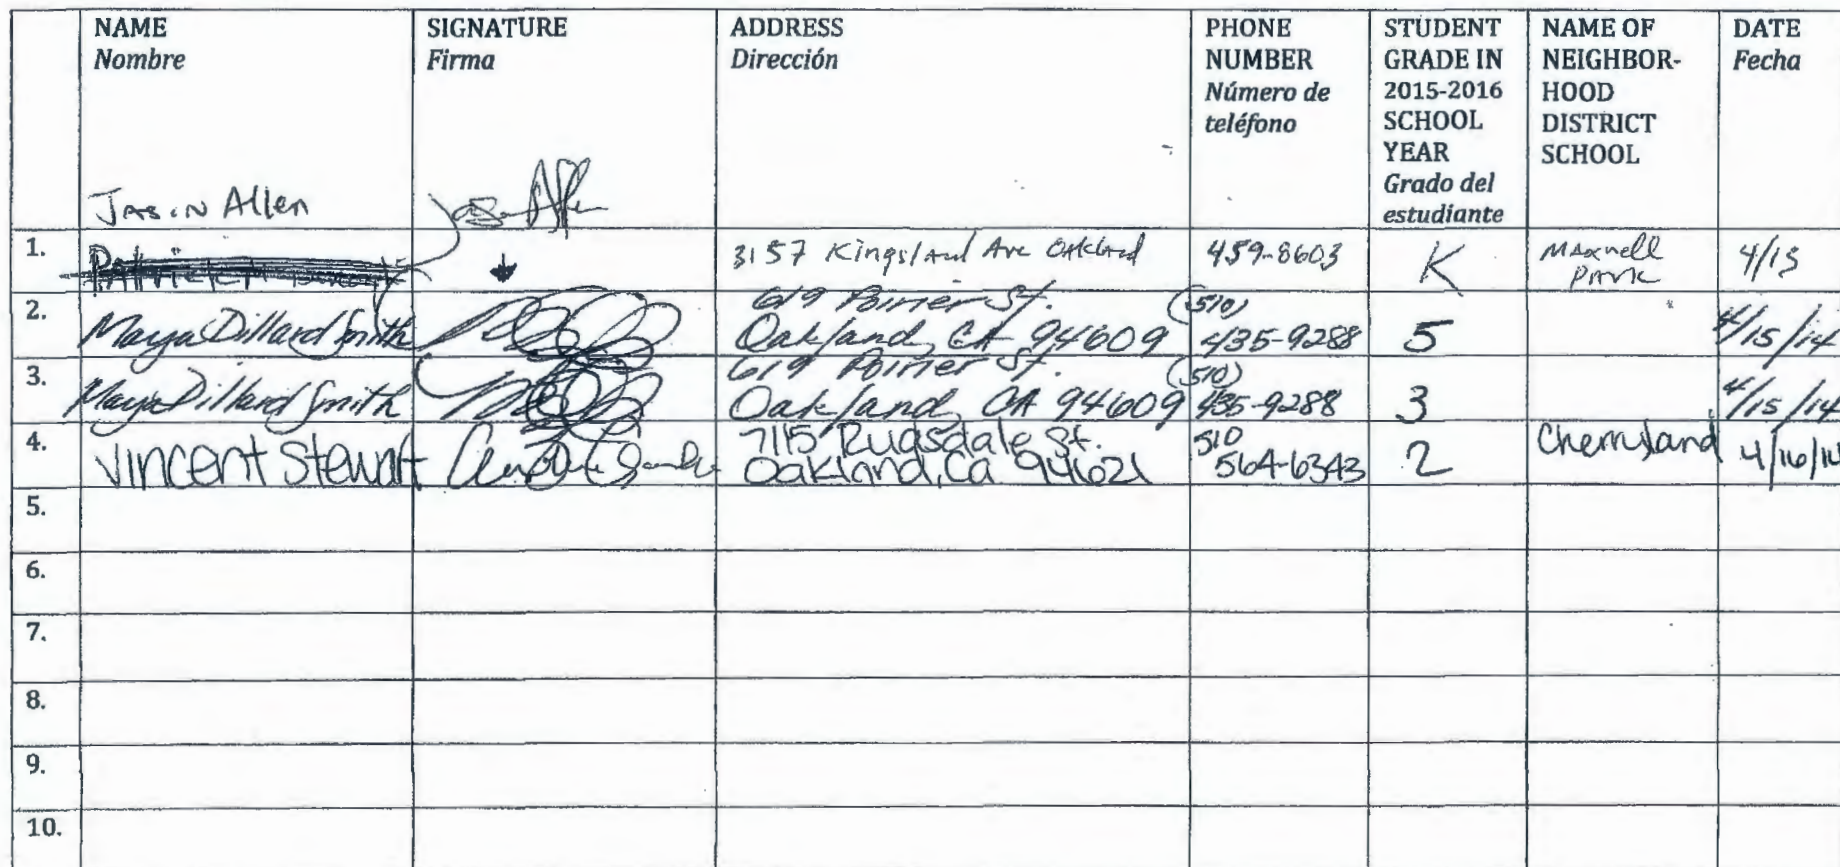 NAME
Nombre
SIGNATURE
Firma
ADDRESS
Dirección
PHONE
NUMBER
Número de
teléfono
STUDENT
GRADE IN
2015-2016
SCHOOL
YEAR
Grado del
estudiante
NAME OF
NEIGHBOR-
HOOD
DISTRICT
SCHOOL
DATE
Fecha
Jason Allen
1.
3157 Kingsland Ave Oakland
459-8603
K
Maxwell
Park
4/15
2.
Maya Dillard Smith
619 Poirier St.
Oakland, CA 94609
(510)
435-9288
5
4/15/14
3.
Maya Dillard Smith
619 Poirier St.
Oakland, CA 94609
(510)
435-9288
3
4/15/14
4.
Vincent Stewart
7115 Rugsdale St.
Oakland, Ca 94621
510
564-6343
2
4/16/14
5.
6.
7.
8.
9.
10.